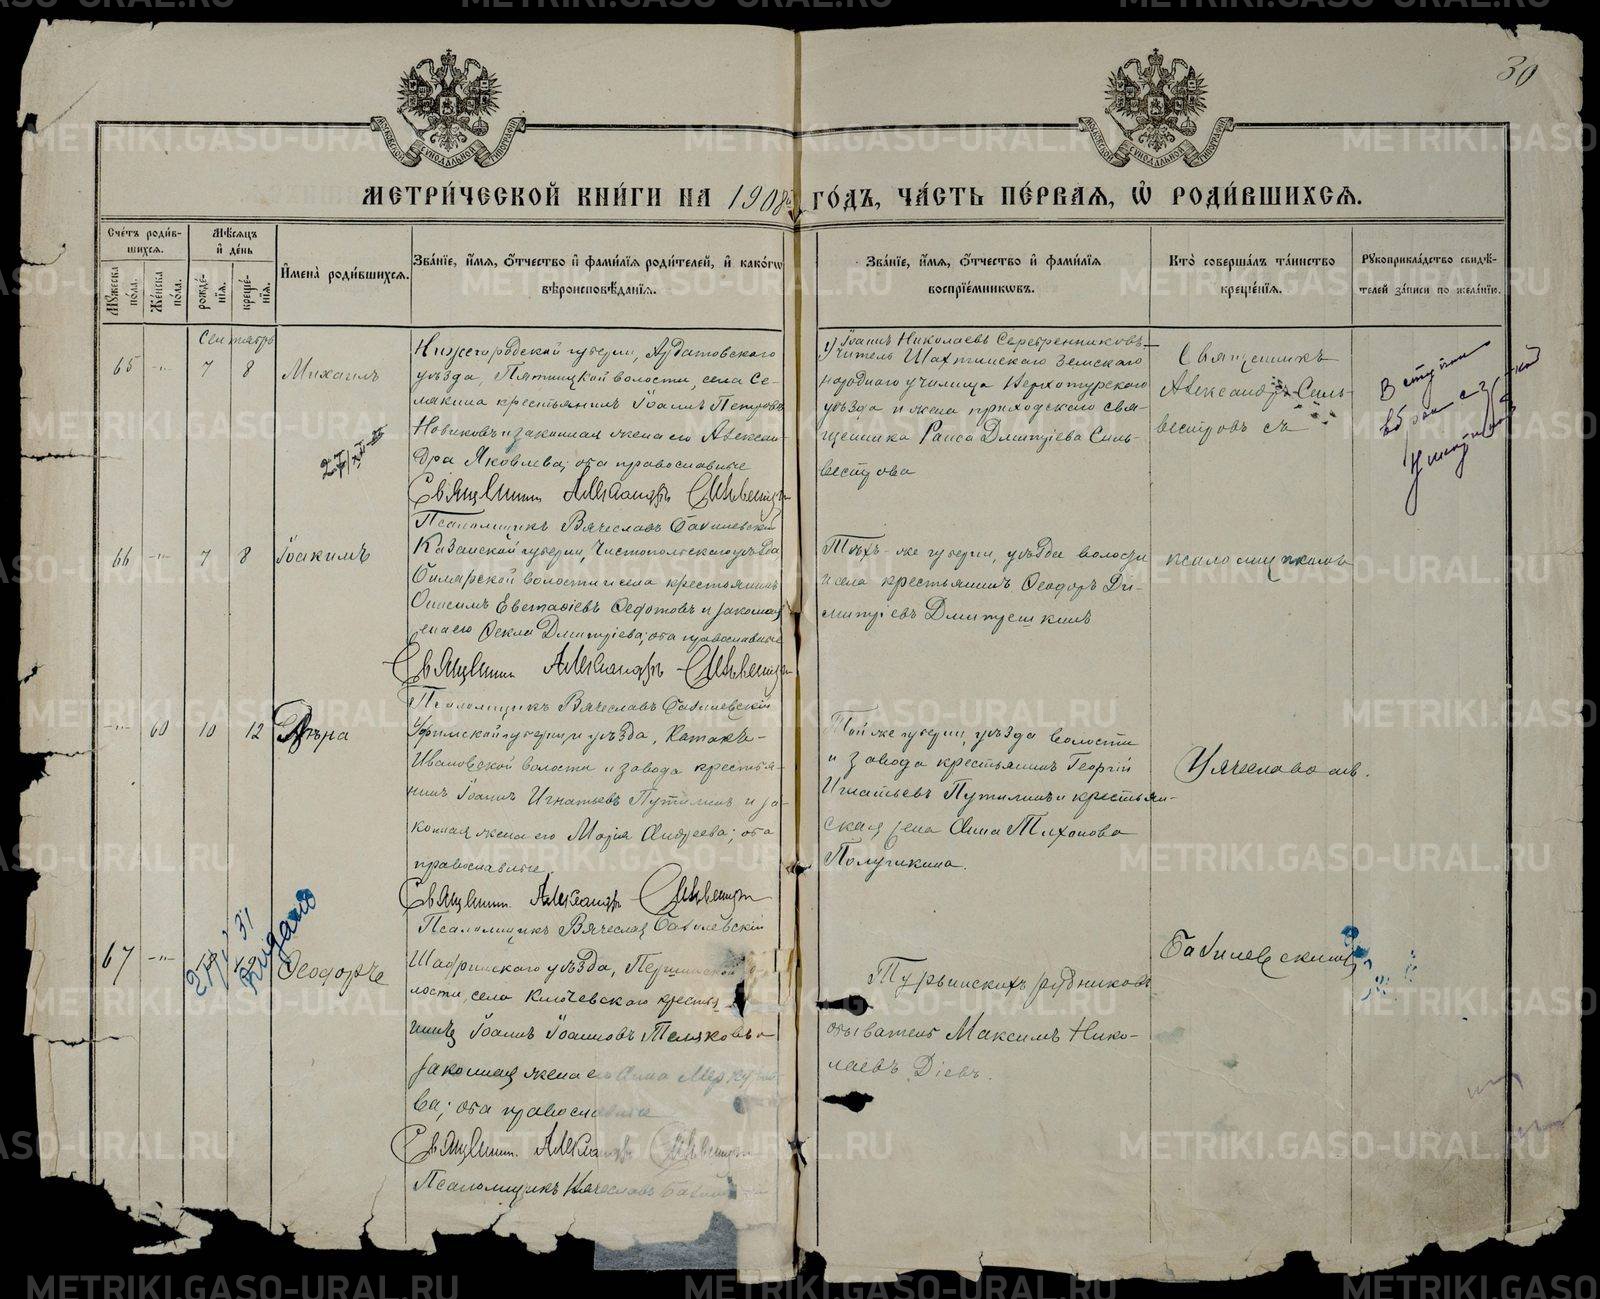 30
МОСКОВСКОЙ СѴНОДАЛЬНОЙ ТИПОГРАФІИ
МОСКОВСКОЙ СѴНОДАЛЬНОЙ ТИПОГРАФІИ
МЕТРИ́ЧЕСКОЙ КНИ́ГИ НА 1908й ГО́ДЪ, ЧА́СТЬ ПЕ́РВАЯ, Ѡ҆ РОДИ́ВШИХСѦ.
Сче́тъ роди́в-
шихся.
Мѣ́сяцъ
и҆ де́нь
Му́жеска по́ла.
Же́нска по́ла.
рожде́нїя.
креще́нїя.
И҆мена̀ роди́вшихся.
Зва́нїе, и҆́мя, ѻ҆́тчество и҆ фами́лїя роди́телей, и҆ како́гѡ
вѣроисповѣ́данїя.
Зва́нїе, и҆́мя, ѻ҆́тчество и҆ фами́лїя
воспрїе́мникѡвъ.
Кто̀ соверша́лъ та́инство
креще́нїя.
Рукоприкла́дство свидѣ́-
телей за́писи по жела́нїю.
Сентябрь
65 -"- 7 8 Михаилъ
Нижегородской губерніи, Ардатовскаго
уѣзда, Пятницкой волости, села Се-
мякина крестьянинъ Іоаннъ Петровъ
Новиковъ и законная жена его Алексан-
дра Яковлева; оба православные
Священник Александръ Сильвестров
Псаломщикъ Вячеславъ Бабилевскій
Іоаннъ Николаевъ Серебренниковъ
Учитель Шахтинскаго Земскаго
народнаго училища Верхотурскаго
уѣзда и жена приходскаго свя-
щенника Раиса Дмитріева Силь-
вестрова
Священникъ
Александръ Силь-
вестровъ съ
66 -"- 7 8 Іоакимъ
Казанской губерніи, Чистопольскаго уѣзда
волости и села крестьянинъ
Онисимъ Евстафіевъ Ѳедотовъ и законная
жена его Ѳекла Дмитріева; оба православные
Священник Александръ Сильвестров
Псаломщикъ Вячеславъ Бабилевскій
Тѣхъ-же губерніи, уѣзда волости
и села крестьянинъ Ѳеодоръ Ди-
митріевъ Дмитрешкинъ
псаломщикомъ
-"- 60 10 12
Уфимской губерніи и уѣзда, Катавъ-
Ивановской волости и завода крестья-
нинъ Іоаннъ Игнатьевъ Путилинъ и за-
конная жена его Марія Андреева; оба
православные.
Священник Александръ Сильвестров
Псаломщикъ Вячеслав Бабилевскій
Той же губерніи, уѣзда волости
и завода крестьянинъ Георгій
Игнатьевъ Путилинъ и крестьян-
ская жена Анна Тихонова
Вячеславомъ.
67 -"- Ѳеодоръ
Шадринскаго уѣзда, Першинской во-
лости, села Ключевского крестья-
нинъ Іоаннъ Іоанновъ Теляковъ и
законная жена его Анна Меркурье-
ва; оба православные
Священник Александръ Сильвестров
Псаломщикъ Вячеславъ Бабилевскій
Турьинскихъ рудниковъ
обыватель Максимъ Нико-
лаевъ Діевъ.
Бабилевскимъ
Выдано
METRIKI.GASO-URAL.RU